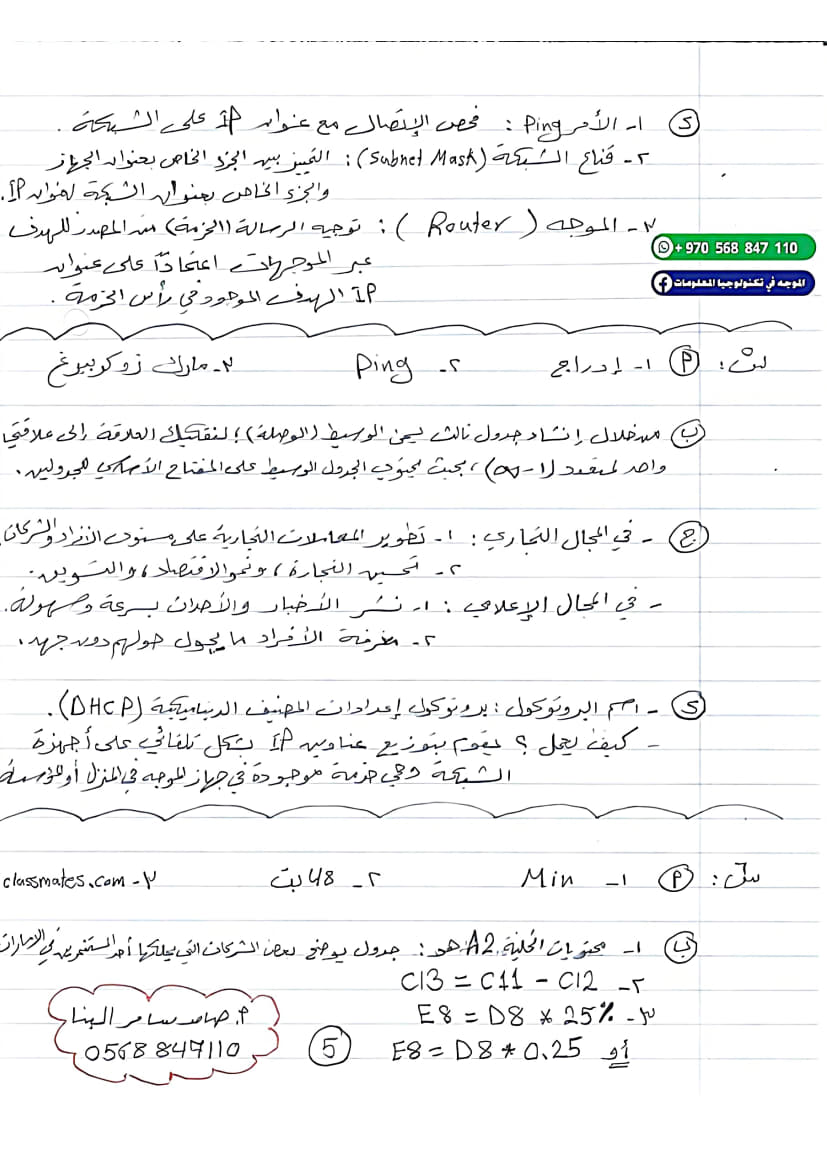 د ١- الأمر Ping : فحص الإتصال مع عنوان IP على الشبكة .
٢- قناع الشبكة (Subnet Mask) : التمييز بين الجزء الخاص بعنوان الجهاز
والجزء الخاص بعنوان الشبكة لعنوان IP.
٣- الموجه ( Router ) : توجيه الرسالة (الحزمة) من المصدر للهدف
عبر الموجهات اعتماداً على عنوان
IP الهدف الموجود في رأس الحزمة .
+ 970 568 847 110
الموجه في تكنولوجيا المعلومات
س٥: P ١- إدراج ٢- Ping ٣- مارك زوكوبيرغ
ب من خلال إنشاء جدول ثالث يسمى الوسيط (الوصلة) ؛ لتفكيك العلاقة إلى علاقتي
واحد لمتعدد (١-∞) ، بحيث يحتوي الجدول الوسيط على المفتاح الأساسي للجدولين .
ج - في المجال التجاري : ١- تطوير المعاملات التجارية على مستوى الأفراد والشركات.
٢- تحسين التجارة ، ونمو الاقتصاد ، والتسويق .
- في المجال الإعلامي : ١- نشر الأخبار والأحداث بسرعة وسهولة .
٢- معرفة الأفراد ما يجول حولهم دون جهد .
د - اسم البروتوكول : بروتوكول إعدادات المضيف الديناميكية (DHCP).
- كيف يعمل ؟ يقوم بتوزيع عناوين IP بشكل تلقائي على أجهزة
الشبكة وهي خدمة موجودة في جهاز الموجه في المنزل أو المؤسسة
P ١- Min ٢- 48 بت ٣- classmates.com
ب ١- محتويات الخلية A2 هو : جدول يوضح بعض الشركات التي يملكها أحد المستثمرين في الامارات
٢- C13 = C11 - C12
٣- E8 = D8 * 25%
أو E8 = D8 * 0.25
5
م. حامد سامر البنا
0568 847110